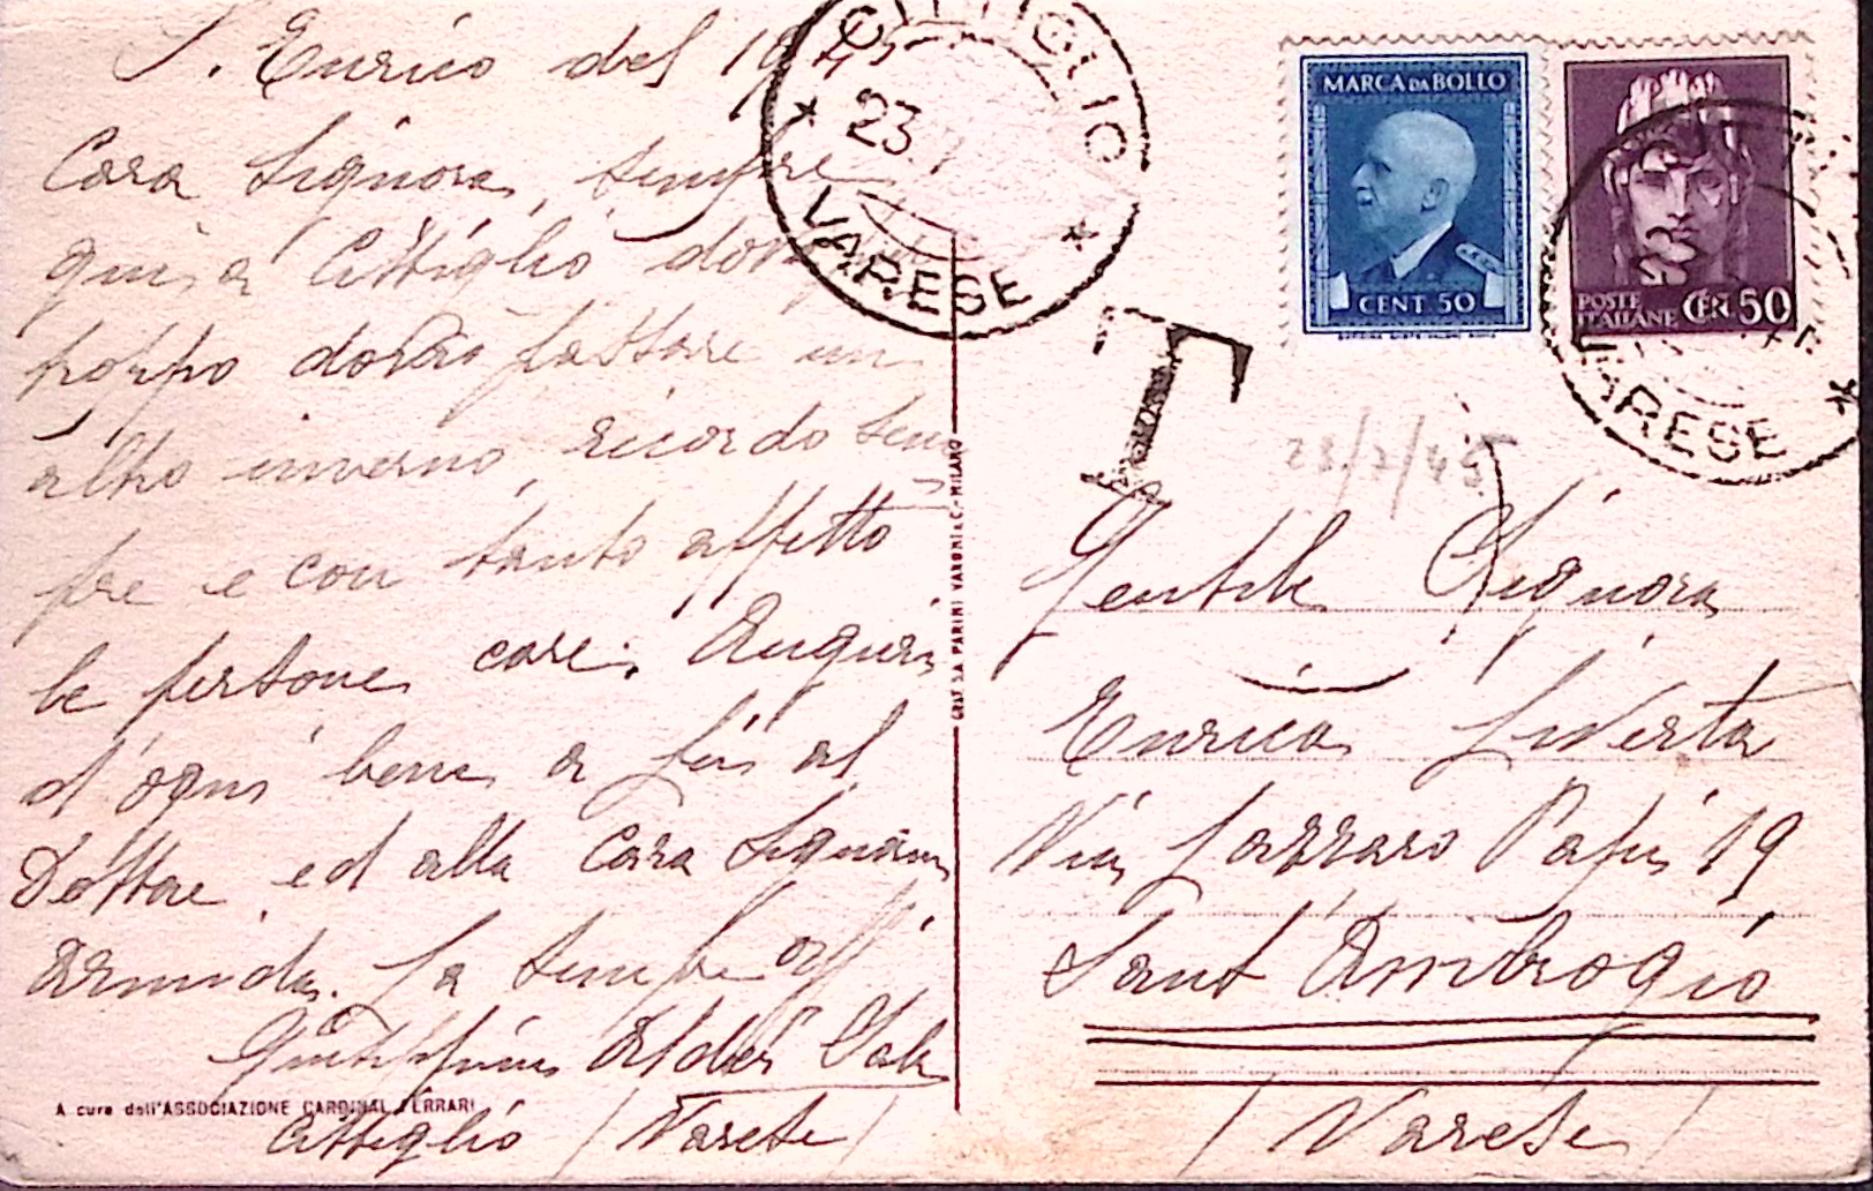 S. Enrico del 1945
Cara Signora, sempre
qui a Cittiglio dove
purtroppo dovrò passare un
altro inverno, ricordo sem
pre e con tanto affetto
le persone care. Auguri
d'ogni bene a Lei al
Dottore ed alla Cara Signorina
Armida. La sempre aff
Giuseppina
Cittiglio (Varese)
A cura dell'ASSOCIAZIONE CARDINAL FERRARI
GRAF. S.A. PARINI VANONI & C. - MILANO
CITTIGLIO
23.
VARESE
MARCA DA BOLLO
CENT 50
POSTE ITALIANE CEN 50
VARESE
T
23/7/45
Gentile Signora
Enrica
Via Lazzaro Papi 19
Sant'Ambrogio
(Varese)